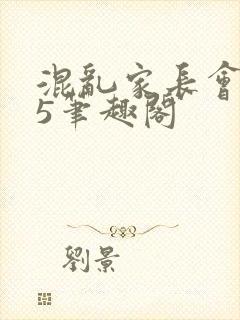 混亂家長會
5筆趣閣
劉景